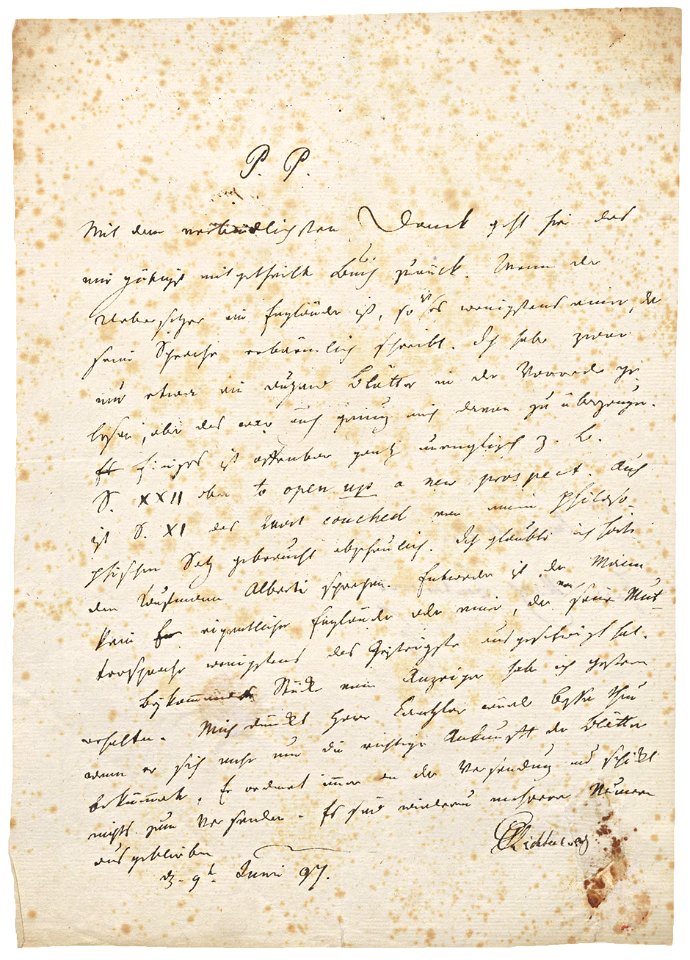 P. P.
Mit dem verbindlichsten Danck geht hier das
mir gütigst mitgetheilte Buch zurück. Wenn der
Uebersetzer ein Engländer ist, so ist es wenigstens einer, der
seine Sprache erbärmlich schreibt. Ich habe zwar
nur etwa ein dutzend Blätter in der Vorrede ge
lesen, aber das war auch genug mich davon zu überzeugen.
Einiges ist offenbar ganz unenglisch z. B.
S. XXII oben to open up a new prospect. Auch
ist S. XI das Wort couched von einem philoso
phischen Satz gebraucht abscheulich. Ich glaubte ich hörte
den Kaufmann Alberti sprechen. Entweder ist der Mann
kein eigentlicher Engländer oder einer, der seine Mut
tersprache wenigstens das Geistigste ausgeschwizt hat.
Bekommende Stücke vom Anzeiger habe ich gestern
erhalten. Mich dünckt Herr würde besser thun
wenn er sich mehr um die richtige Ankunfft der Blätter
bekümmerte. Er ordnet immer an der Versendung und schickt
nichts zum Versenden. Es sind wiederum mehrere Numern
ausgeblieben
d. 9t Junii 97. GCLichtenberg.